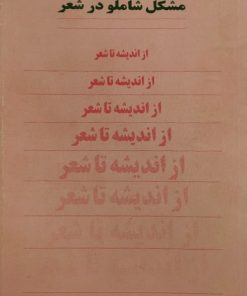 مشکل شاملو در شعر
از اندیشه تا شعر
از اندیشه تا شعر
از اندیشه تا شعر
از اندیشه تا شعر
از اندیشه تا شعر
از اندیشه تا شعر
از اندیشه تا شعر
از اندیشه تا شعر
از اندیشه تا شعر